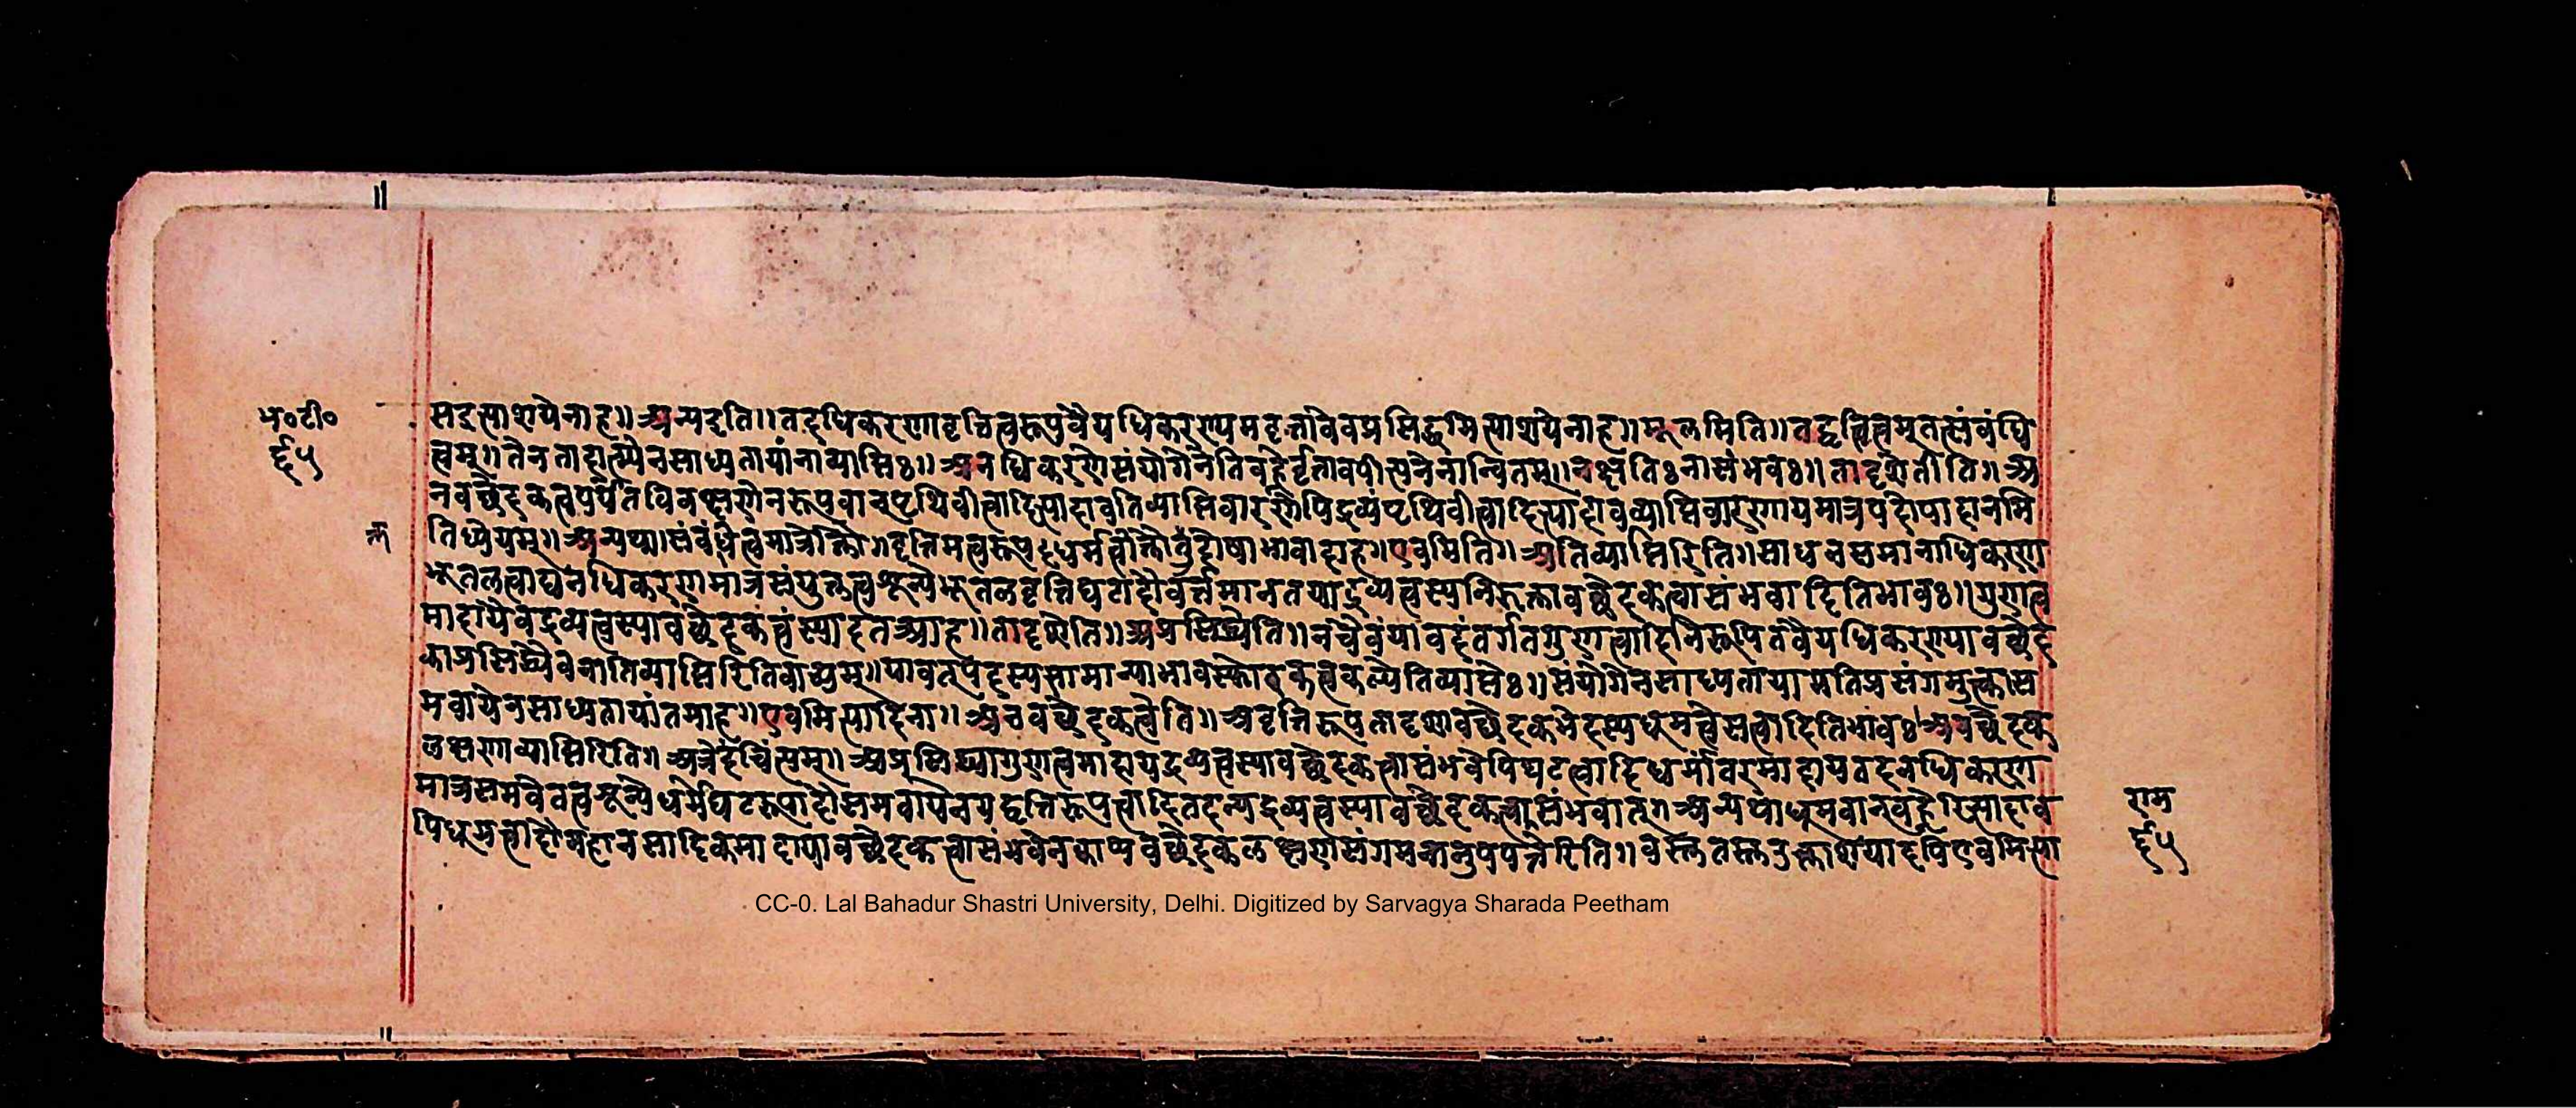 भ०टी०
६५
सदुत्याशयेनाह॥अन्यदृति॥तदधिकरणावृत्तित्वरूपंवैयधिकरण्यमवृत्तावेवप्रसिद्धमित्याशयेनाह॥मूलमिति॥तद्वृत्तित्वमूतत्संबंधि
त्वम्॥तेनतादात्म्येनसाध्यतायांनाव्याप्तिः॥अनधिकरणेसंयोगेनेतिवह्नेर्वृत्तावपीत्यनेनान्वितम्॥नक्षतिःनासंभवः॥तादृशेतीति॥अ
नवच्छेदकत्वपर्यंतविवक्षणेनरूपवान्पृथिवीत्वादित्यादावतिव्याप्तिवारणेपिद्रव्यंपृथिवीत्वादित्यादावव्याप्तिवारणायमात्रपदोपादानमि
तिध्येयम्॥अन्यथा॥संबंधित्वमात्रोक्तौ॥वृत्तिमत्वरूपधर्मत्वोक्तौतुदोषाभावादाह॥एवमिति॥अतिव्याप्तिरिति॥साधनसमानाधिकरण
भूतलत्वाद्यनधिकरणमात्रसंयुक्तत्वशून्येभूतलवृत्तिघटादौवर्त्तमानतयाद्रव्यत्वस्यनिरुक्तावच्छेदकत्वासंभवादितिभावः॥गुणत्व
मादायैवद्रव्यत्वस्यावच्छेदकत्वंस्यादतआह॥तादृशेति॥अप्रसिद्ध्येति॥नचैवंयावदंतर्गतगुणत्वादिनिरूपितवैयधिकरण्यावच्छेद
काप्रसिद्ध्यैवनातिव्याप्तिरितिवाच्यम्॥यावत्पदस्यसामान्याभावस्फोरकत्वकल्पेतिव्याप्तेः॥संयोगेनसाध्यतायामतिप्रसंगमुक्त्वास
मवायेनसाध्यतायांतमाह॥एवमित्यादिना॥अनवच्छेदकत्वेति॥अवृत्तिरूपतादृशावच्छेदकभेदस्यधूमत्वेसत्वादितिभावः॥अवच्छेदक
लक्षणाव्याप्तिरिति॥अत्रेदंचिंत्यम्॥अप्रसिद्ध्यागुणत्वमादायद्रव्यत्वस्यावच्छेदकत्वासंभवेपिघटत्वादिधर्मांतरमादायतदनधिकरण
मात्रसमवेतत्वशून्येधर्मेघटरूपादौसमवायेनयद्वृत्तिरूपत्वादितदन्यद्रव्यत्वस्यावच्छेदकत्वासंभवात्॥अन्यथाधूमवान्वह्नेरित्यादाव
पिधूमत्वादौमहानसादिकमादायावच्छेदकत्वासंभवेनकाप्यवच्छेदकलक्षणसंगमनानुपपत्तेरिति॥वस्तुतस्तूक्ताशंयादपिएवमित्या
राम
६५
CC-0. Lal Bahadur Shastri University, Delhi. Digitized by Sarvagya Sharada Peetham